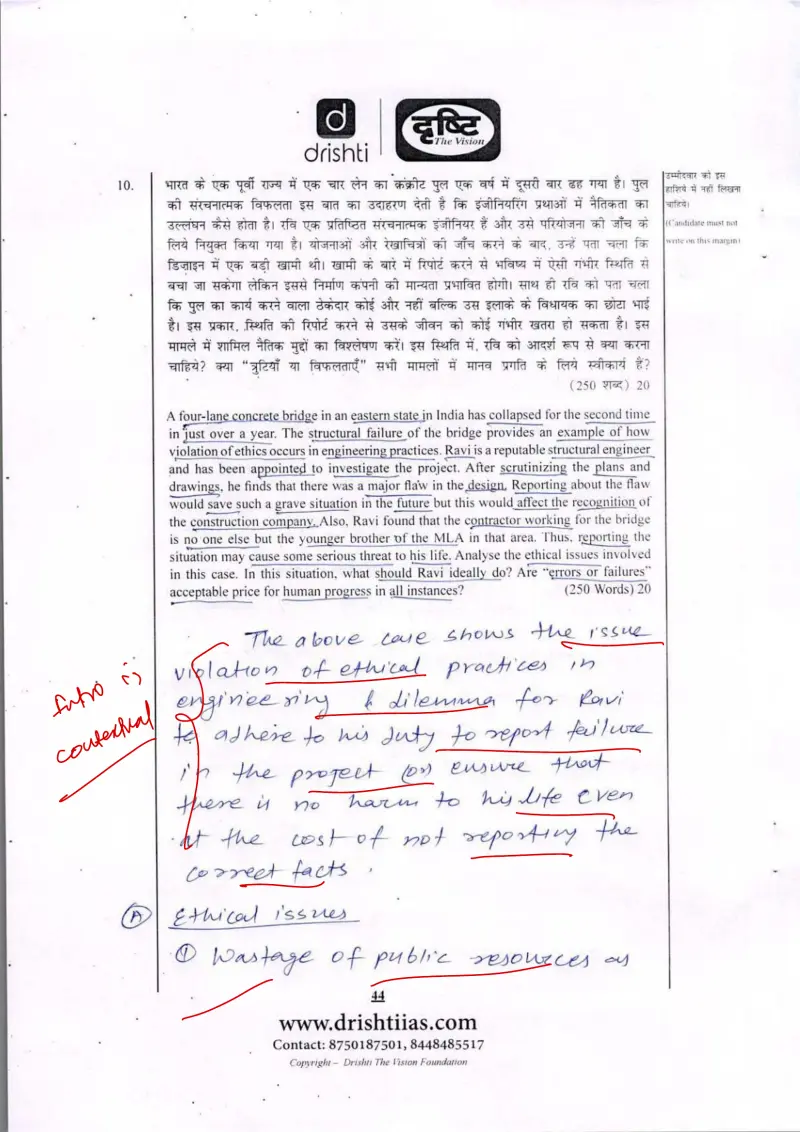 d
drishti
दृष्टि
The Vision
उम्मीदवार को इस
हाशिये में नहीं लिखना
चाहिये।
(Candidate must not
write on this margin)
10.
भारत के एक पूर्वी राज्य में एक चार लेन का क्रंक्रीट पुल एक वर्ष में दूसरी बार ढह गया है। पुल
की संरचनात्मक विफलता इस बात का उदाहरण देती है कि इंजीनियरिंग प्रथाओं में नैतिकता का
उल्लंघन कैसे होता है। रवि एक प्रतिष्ठित संरचनात्मक इंजीनियर हैं और उसे परियोजना की जाँच के
लिये नियुक्त किया गया है। योजनाओं और रेखाचित्रों की जाँच करने के बाद, उन्हें पता चला कि
डिज़ाइन में एक बड़ी खामी थी। खामी के बारे में रिपोर्ट करने से भविष्य में ऐसी गंभीर स्थिति से
बचा जा सकेगा लेकिन इससे निर्माण कंपनी की मान्यता प्रभावित होगी। साथ ही रवि को पता चला
कि पुल का कार्य करने वाला ठेकेदार कोई और नहीं बल्कि उस इलाके के विधायक का छोटा भाई
है। इस प्रकार, स्थिति की रिपोर्ट करने से उसके जीवन को कोई गंभीर खतरा हो सकता है। इस
मामले में शामिल नैतिक मुद्दों का विश्लेषण करें। इस स्थिति में, रवि को आदर्श रूप से क्या करना
चाहिये? क्या “त्रुटियाँ या विफलताएँ” सभी मामलों में मानव प्रगति के लिये स्वीकार्य हैं?
(250 शब्द) 20
A four-lane concrete bridge in an eastern state in India has collapsed for the second time
in just over a year. The structural failure of the bridge provides an example of how
violation of ethics occurs in engineering practices. Ravi is a reputable structural engineer
and has been appointed to investigate the project. After scrutinizing the plans and
drawings, he finds that there was a major flaw in the design. Reporting about the flaw
would save such a grave situation in the future but this would affect the recognition of
the construction company. Also, Ravi found that the contractor working for the bridge
is no one else but the younger brother of the MLA in that area. Thus, reporting the
situation may cause some serious threat to his life. Analyse the ethical issues involved
in this case. In this situation, what should Ravi ideally do? Are “errors or failures”
acceptable price for human progress in all instances? (250 Words) 20
The above case shows the issue
violation of ethical practices in
engineering & dilemma for Ravi
to adhere to his duty to report failure
in the project (or) ensure that
there is no harm to his life even
at the cost of not reporting the
correct facts.
Intro is
contextual
(A) Ethical issues
① Wastage of public resources as
44
www.drishtiias.com
Contact: 8750187501, 8448485517
Copyright – Drishti The Vision Foundation